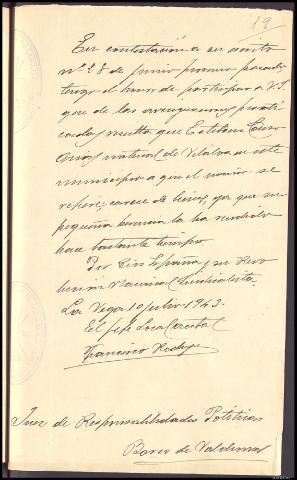 19
En contestación a su escrito
nº 28 de Junio proximo pasado,
tengo el honor de participar a V.S.
que de las averiguaciones practi
cadas, resulta que Esteban
natural de Villalva en este
municipio a que el mismo se
refiere; carece de bienes, ya que su
pequeña herencia la ha vendido
hace bastante tiempo
Por Dios España y su Revo
lución Nacional Sindicalista.
La Vega 10 julio 1943.
El jefe Local accetal
Francisco
Juez de Responsabilidades Politicas
Barco de Valdeorras